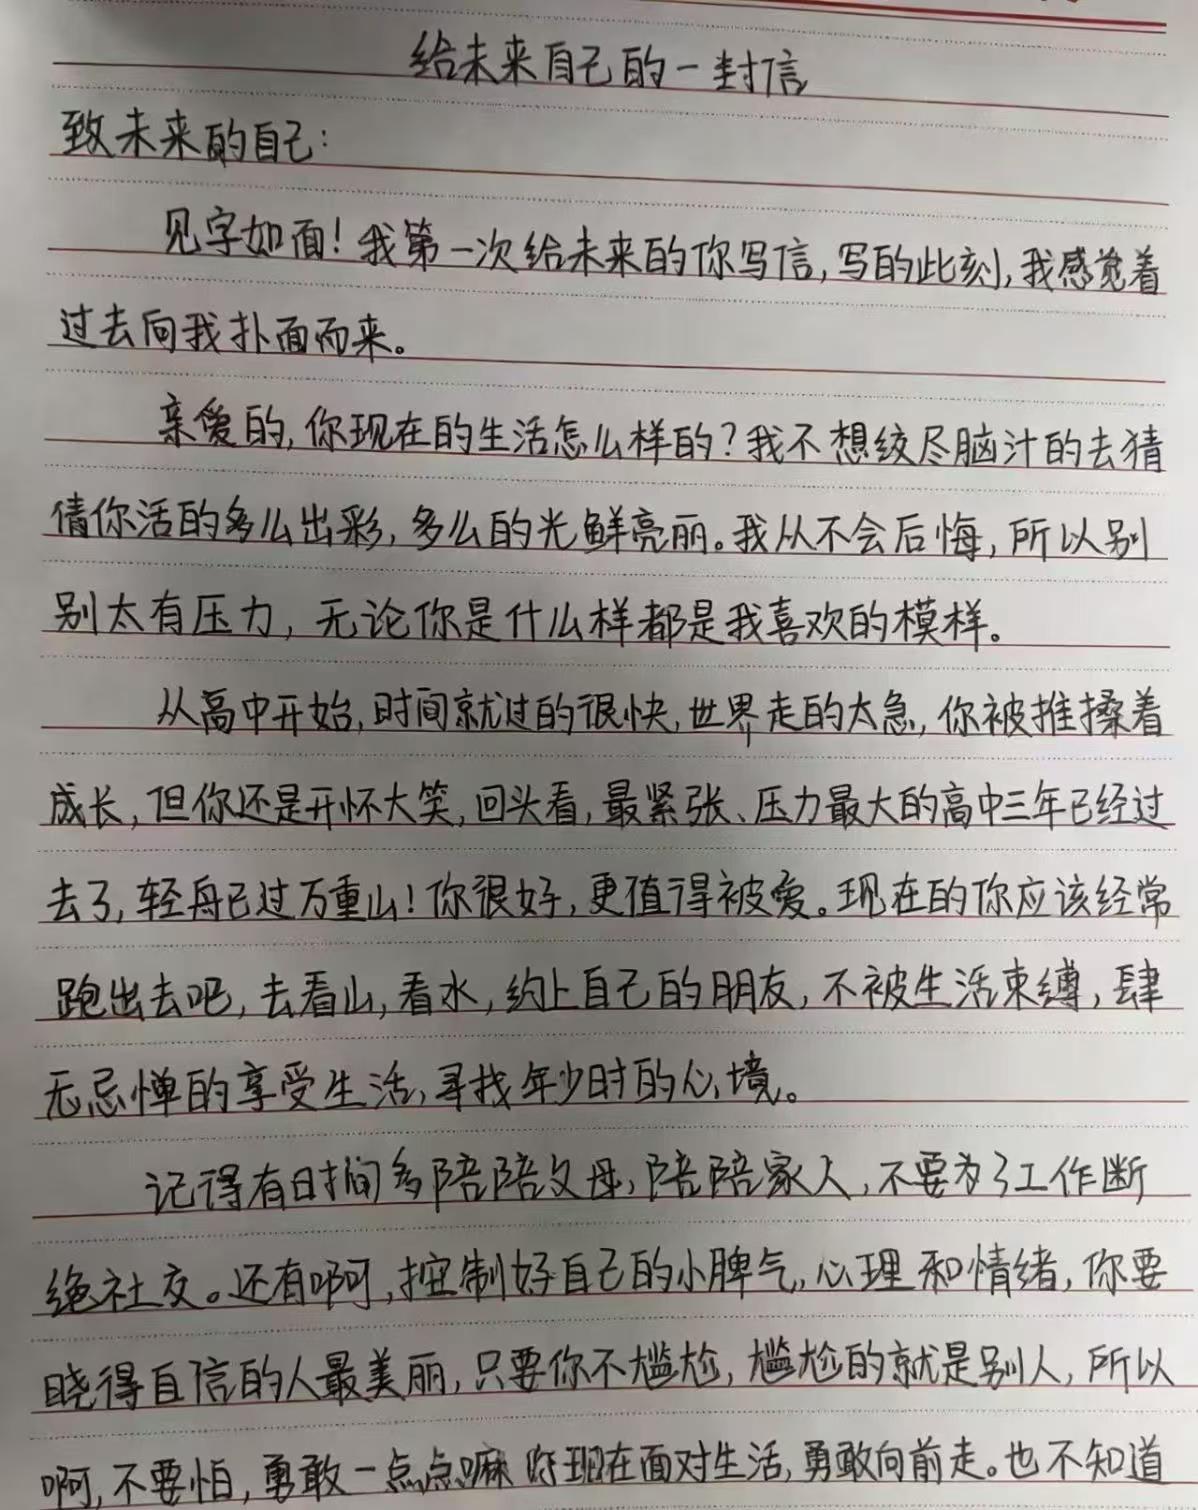 给未来自己的一封信
致未来的自己：
见字如面！我第一次给未来的你写信，写的此刻，我感觉着
过去向我扑面而来。
亲爱的，你现在的生活怎么样的？我不想绞尽脑汁的去猜
倩你活的多么出彩，多么的光鲜亮丽。我从不会后悔，所以别
别太有压力，无论你是什么样都是我喜欢的模样。
从高中开始，时间就过的很快，世界走的太急，你被推搡着
成长，但你还是开怀大笑，回头看，最紧张、压力最大的高中三年已经过
去了，轻舟已过万重山！你很好，更值得被爱。现在的你应该经常
跑出去吧，去看山，看水，约上自己的朋友，不被生活束缚，肆
无忌惮的享受生活，寻找年少时的心境。
记得有时间多陪陪父母，陪陪家人，不要为了工作断
绝社交。还有啊，控制好自己的小脾气，心理和情绪，你要
晓得自信的人最美丽，只要你不尴尬，尴尬的就是别人，所以
啊，不要怕，勇敢一点点嘛 现在面对生活，勇敢向前走。也不知道